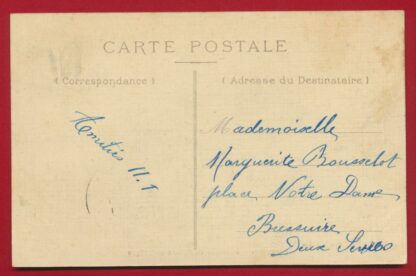 CARTE POSTALE
( Correspondance )
( Adresse du Destinataire )
Amitiés H. T
Mademoiselle
Marguerite Bousselot
place Notre Dame
Bressuire
Deux Sevres